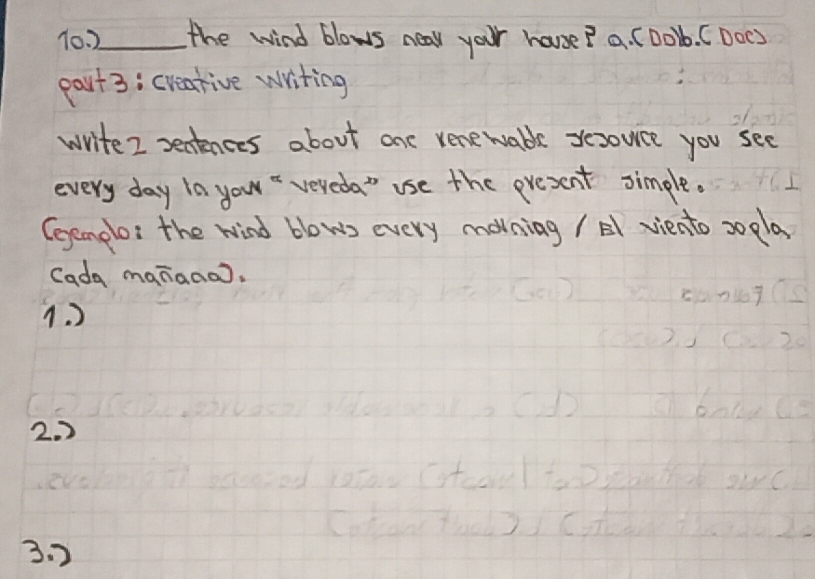 10.) ______ the wind blows near your house? a.( Do) b.( Does
part 3: creative writing
write 2 sentences about one renewable resource you see
every day in your "vereda" use the present simple.
(ejemplo: the wind blows every morning / El viento sopla
cada mañana).
1.)
2.)
3.)